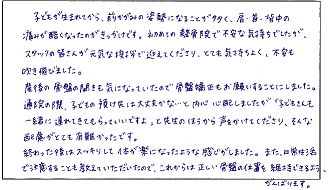 子どもが生まれてから、前かがみの姿勢になることが多く、肩・首・背中の
痛みが酷くなったのがきっかけです。初めての整骨院で不安な気持ちでしたが、
スタッフの皆さんが元気な挨拶で迎えてくださり、とても気持ちよく、不安も
吹き飛びました。
産後の骨盤の開きも気になっていたので骨盤矯正もお願いすることにしました。
通院の際、子どもの預け先は大丈夫かな…と内心心配しましたが「子どもさんも
一緒に連れてきてもらっていいですよ」と先生のほうから声をかけてくださり、そんな
配慮がとても有難かったです。
終わった後はスッキリして体が楽になったような感じがしました。また、日常生活
で注意することも教えていただいたので、これからは正しい骨盤の位置を維持できるよう、
がんばります。